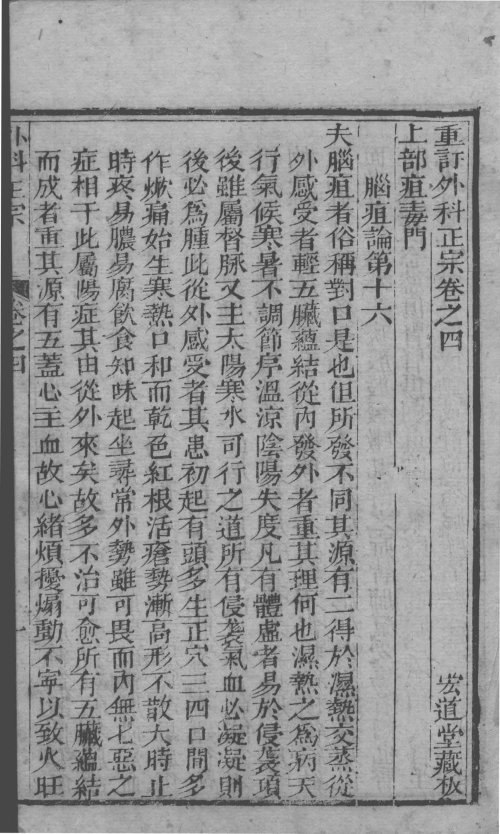 重訂外科正宗卷之四
宏道堂藏板
上部疽毒門
腦疽論第十六
夫腦疽者俗稱對口是也但所發不同其源有二得於濕熱交蒸從
外感受者輕五臟蘊結從內發外者重其理何也濕熱之為病天
行氣候寒暑不調節序溫涼陰陽失度凡有體虛者易於侵襲項
後雖屬督脉又主太陽寒水司行之道所有侵襲氣血必凝凝則
後必為腫此從外感受者其患初起有頭多生正穴三四日間多
作焮痛始生寒熱口和而乾色紅根活瘡勢漸高形不散大時止
時疼易膿易腐飲食知味起坐尋常外勢雖可畏而內無七惡之
症相干此屬陽症其由從外來矣故多不治可愈所有五臟蘊結
而成者重其源有五蓋心主血故心緒煩擾煽動不寧以致火旺
外科正宗
卷之四
一